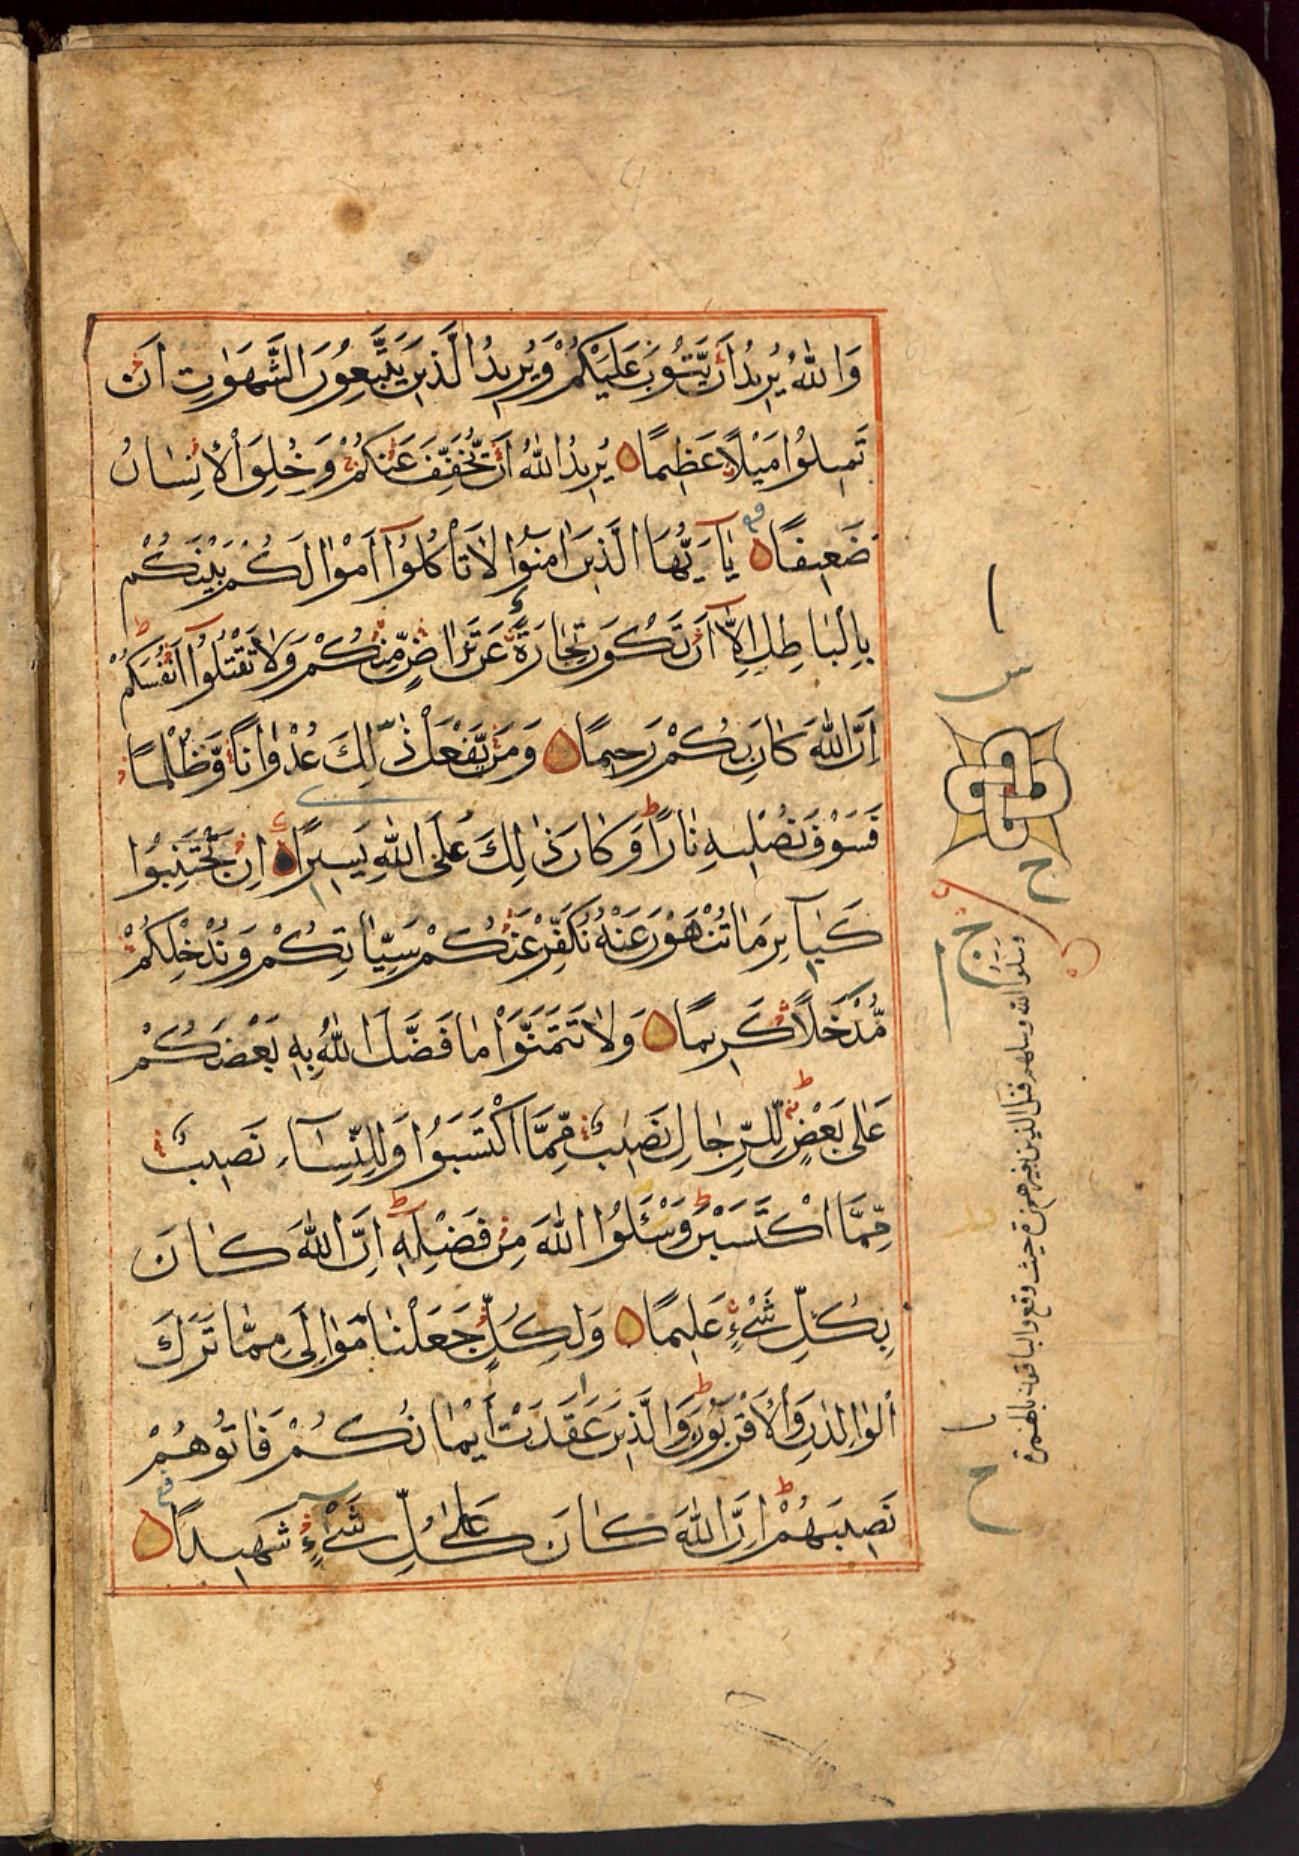 وَاللّٰهُ يُرِيدُ اَنْ يَّتُوبَ عَلَيْكُمْ وَيُرِيدُ الَّذِينَ يَتَّبِعُونَ الشَّهَوٰتِ اَنْ
تَمِيلُوا مَيْلًا عَظِيمًا يُرِيدُ اللّٰهُ اَنْ يُّخَفِّفَ عَنْكُمْ وَخُلِقَ الْاِنْسَانُ
ضَعِيفًا يٰاَيُّهَا الَّذِينَ اٰمَنُوا لَا تَأْكُلُوٓا اَمْوٰالَكُمْ بَيْنَكُمْ
بِالْبَاطِلِ اِلَّآ اَنْ تَكُونَ تِجَارَةً عَنْ تَرَاضٍ مِّنْكُمْ وَلَا تَقْتُلُوٓا اَنْفُسَكُمْ
اِنَّ اللّٰهَ كَانَ بِكُمْ رَحِيمًا وَمَنْ يَّفْعَلْ ذٰلِكَ عُدْوَانًا وَّظُلْمًا
فَسَوْفَ نُصْلِيهِ نَارًا وَكَانَ ذٰلِكَ عَلَى اللّٰهِ يَسِيرًا اِنْ تَجْتَنِبُوا
كَبَآئِرَ مَا تُنْهَوْنَ عَنْهُ نُكَفِّرْ عَنْكُمْ سَيِّاٰتِكُمْ وَنُدْخِلْكُمْ
مُّدْخَلًا كَرِيمًا وَلَا تَتَمَنَّوْا مَا فَضَّلَ اللّٰهُ بِهِ بَعْضَكُمْ
عَلٰى بَعْضٍ لِلرِّجَالِ نَصِيبٌ مِّمَّا اكْتَسَبُوا وَلِلنِّسَآءِ نَصِيبٌ
مِّمَّا اكْتَسَبْنَ وَسْئَلُوا اللّٰهَ مِنْ فَضْلِهِ اِنَّ اللّٰهَ كَانَ
بِكُلِّ شَيْءٍ عَلِيمًا وَلِكُلٍّ جَعَلْنَا مَوَالِيَ مِمَّا تَرَكَ
الْوَالِدٰنِ وَالْاَقْرَبُونَ وَالَّذِينَ عَقَدَتْ اَيْمَانُكُمْ فَاٰتُوهُمْ
نَصِيبَهُمْ اِنَّ اللّٰهَ كَانَ عَلٰى كُلِّ شَيْءٍ شَهِيدًا
ا
س
ح
ج
وسلوا الله وسلهم فسل الذين حيث وقع والباقون بالهمزة
ح